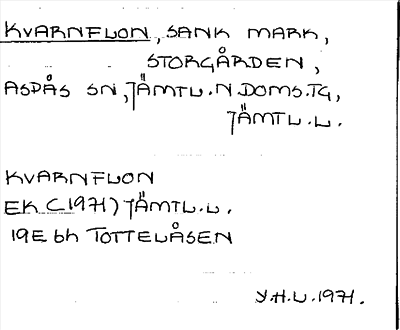 KVARNFLON, SANK MARK,
STORGÅRDEN,
ASPÅS SN, JÄMTL.N.DOMS.TG,
JÄMTL.L.
KVARNFLON
EK (1971) JÄMTL.L.
19E 6h TOTTELÅSEN
Y.H.L. 1971.